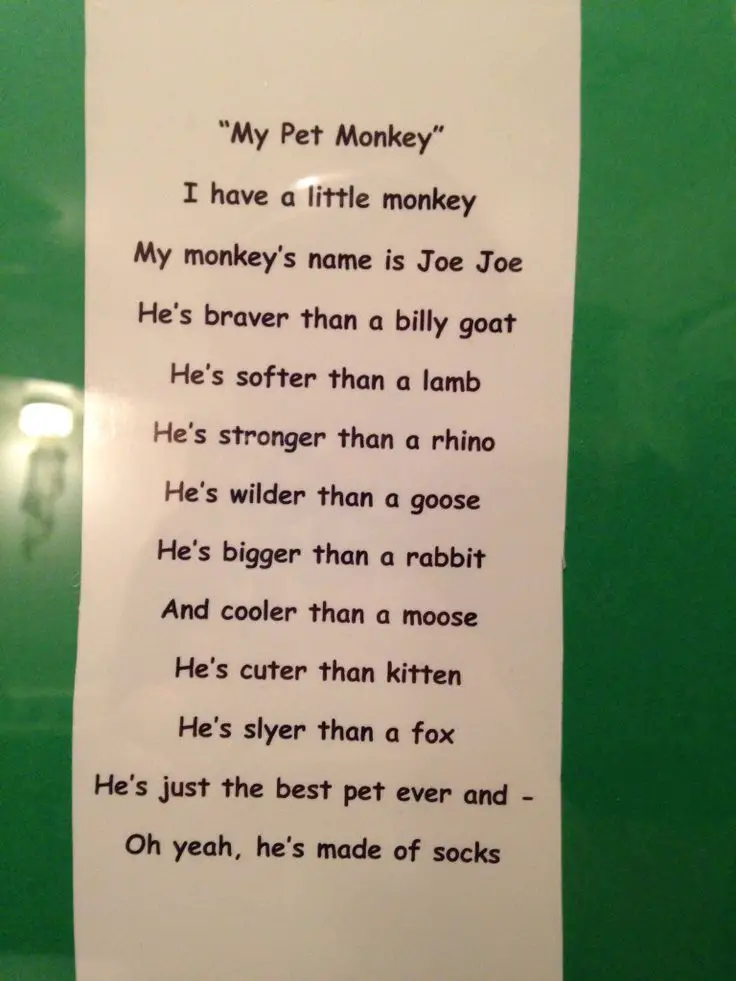 “My Pet Monkey”
I have a little monkey
My monkey’s name is Joe Joe
He’s braver than a billy goat
He’s softer than a lamb
He’s stronger than a rhino
He’s wilder than a goose
He’s bigger than a rabbit
And cooler than a moose
He’s cuter than kitten
He’s slyer than a fox
He’s just the best pet ever and -
Oh yeah, he’s made of socks